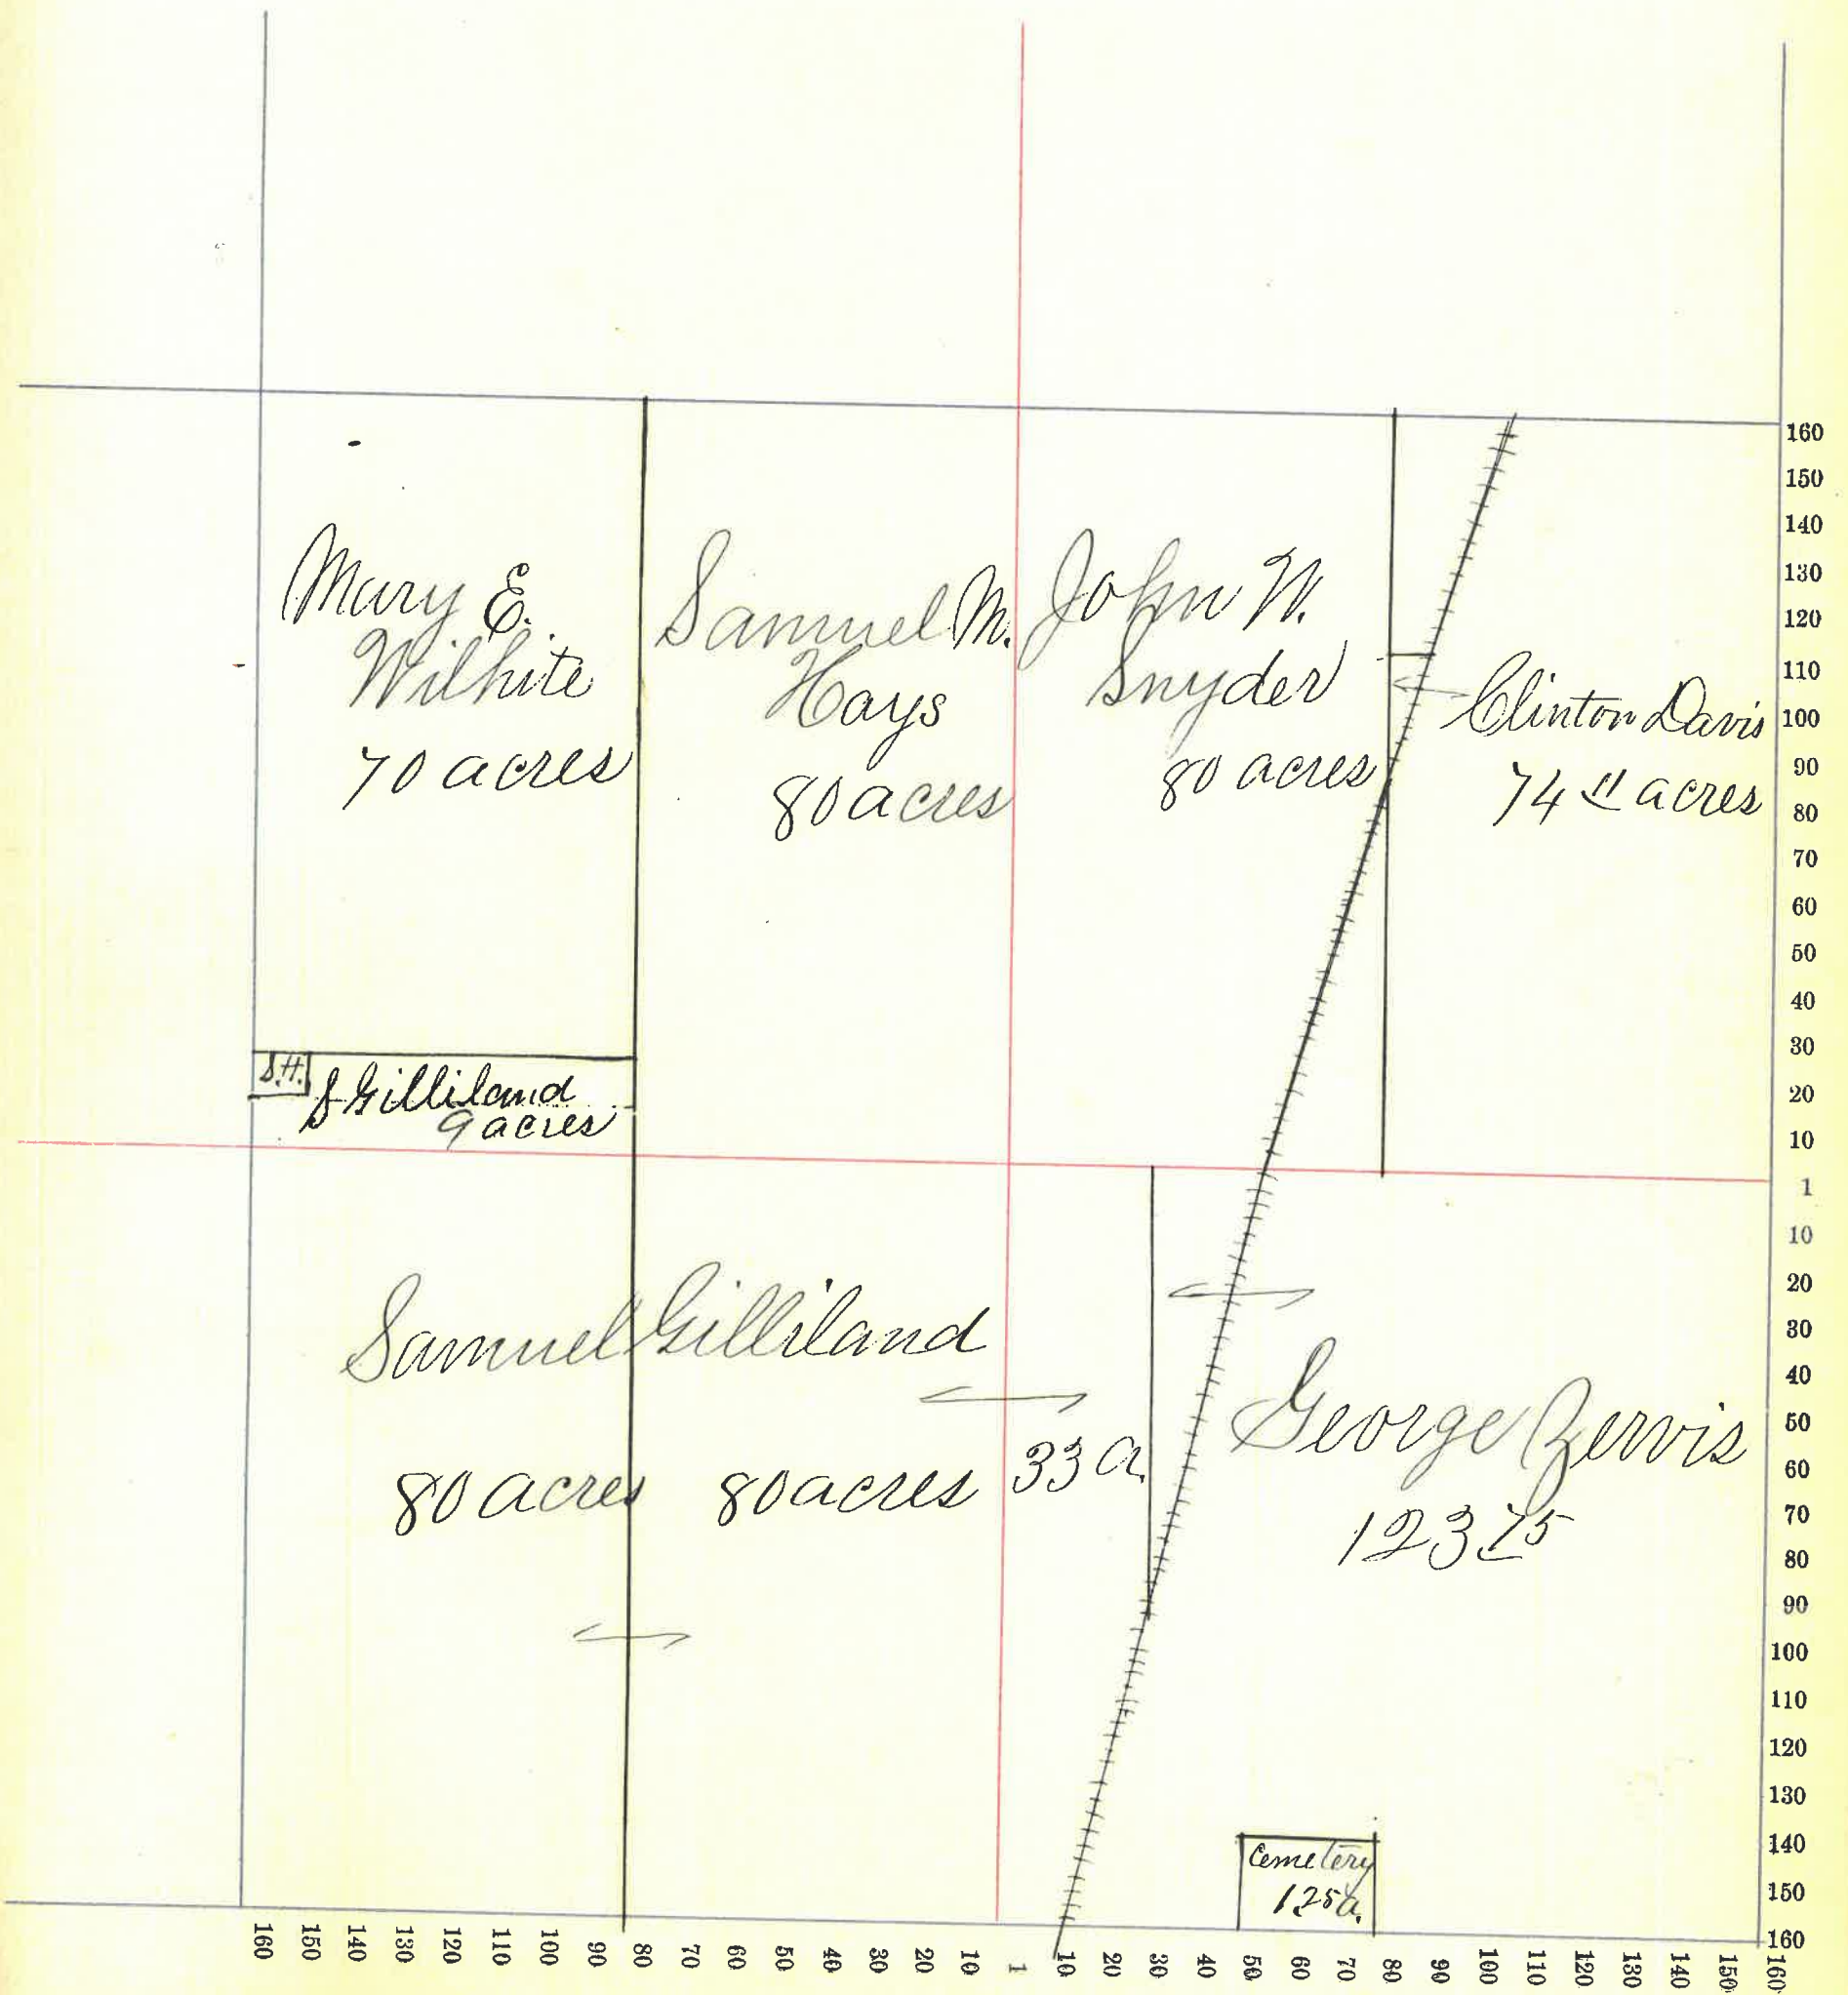 Mary E.
Wilhite
70 acres
Samuel M.
Hays
80 acres
John W.
Snyder
80 acres
Clinton Davis
74 acres
S.H.
S Gilliland
9 acres
Samuel Gilliland
80 acres
80 acres
33 a.
George Zervis
123 75
Cemetery
1.25 a.
160
150
140
130
120
110
100
90
80
70
60
50
40
30
20
10
1
10
20
30
40
50
60
70
80
90
100
110
120
130
140
150
160
160 150 140 130 120 110 100 90 80 70 60 50 40 30 20 10 1 10 20 30 40 50 60 70 80 90 100 110 120 130 140 150 160